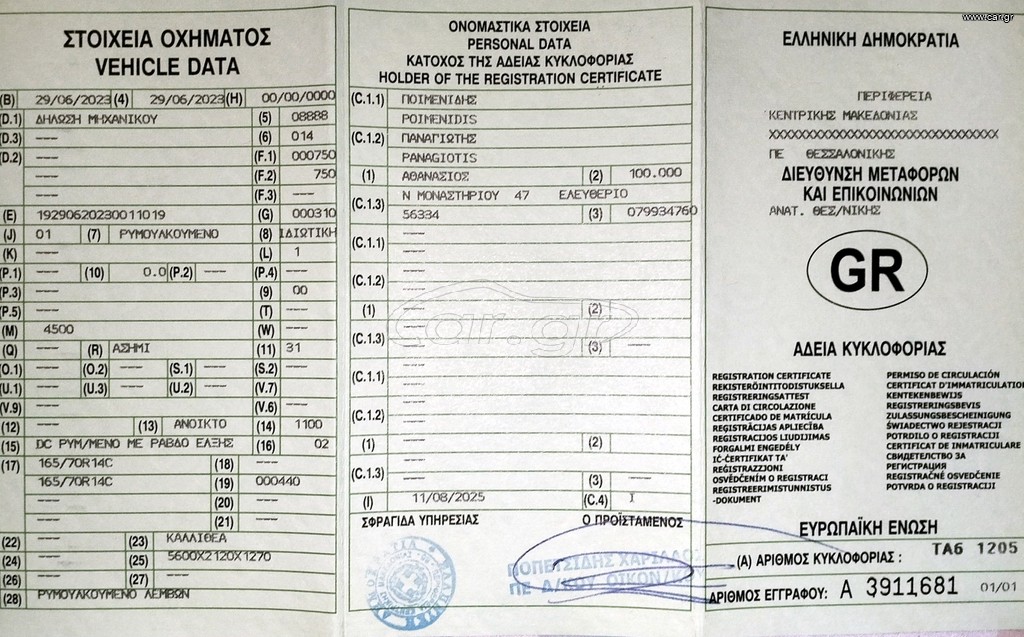 ΣΤΟΙΧΕΙΑ ΟΧΗΜΑΤΟΣ
VEHICLE DATA
(B) 29/06/2023 (4) 29/06/2023 (H) 00/00/0000
(D.1) ΔΗΛΩΣΗ ΜΗΧΑΝΙΚΟΥ (5) 08888
(D.3) --- (6) 014
(D.2) --- (F.1) 000750
--- (F.2) 750
--- (F.3) ---
(E) 19290620230011019 (G) 000310
(J) 01 (7) ΡΥΜΟΥΛΚΟΥΜΕΝΟ (8) ΙΔΙΩΤΙΚΗ
(K) --- (L) 1
(P.1) --- (10) 0.0 (P.2) --- (P.4) ---
(P.3) --- (9) 00
(P.5) --- (T) ---
(M) 4500 (W) ---
(Q) --- (R) ΑΣΗΜΙ (11) 31
(O.1) --- (O.2) --- (S.1) --- (S.2) ---
(U.1) --- (U.3) --- (U.2) --- (V.7) ---
(V.9) --- (V.6) ---
(12) --- (13) ΑΝΟΙΚΤΟ (14) 1100
(15) DC ΡΥΜ/ΜΕΝΟ ΜΕ ΡΑΒΔΟ ΕΛΞΗΣ (16) 02
(17) 165/70R14C (18) ---
165/70R14C (19) 000440
--- (20) ---
--- (21) ---
(22) --- (23) ΚΑΛΛΙΘΕΑ
(24) --- (25) 5600X2120X1270
(26) --- (27) ---
(28) ΡΥΜΟΥΛΚΟΥΜΕΝΟ ΛΕΜΒΩΝ
ΟΝΟΜΑΣΤΙΚΑ ΣΤΟΙΧΕΙΑ
PERSONAL DATA
ΚΑΤΟΧΟΣ ΤΗΣ ΑΔΕΙΑΣ ΚΥΚΛΟΦΟΡΙΑΣ
HOLDER OF THE REGISTRATION CERTIFICATE
(C.1.1) ΠΟΙΜΕΝΙΔΗΣ
POIMENIDIS
(C.1.2) ΠΑΝΑΓΙΩΤΗΣ
PANAGIOTIS
(1) ΑΘΑΝΑΣΙΟΣ (2) 100.000
(C.1.3) Ν ΜΟΝΑΣΤΗΡΙΟΥ 47 ΕΛΕΥΘΕΡΙΟ
56334 (3) 079934760
(C.1.1) ---
---
(C.1.2) ---
---
(1) --- (2)
(C.1.3) ---
--- (3) ---
(C.1.1) ---
---
(C.1.2) ---
---
(1) --- (2)
(C.1.3) ---
--- (3) ---
(I) 11/08/2025 (C.4) I
ΣΦΡΑΓΙΔΑ ΥΠΗΡΕΣΙΑΣ Ο ΠΡΟΪΣΤΑΜΕΝΟΣ
car.gr
www.car.gr
ΕΛΛΗΝΙΚΗ ΔΗΜΟΚΡΑΤΙΑ
ΠΕΡΙΦΕΡΕΙΑ
ΚΕΝΤΡΙΚΗΣ ΜΑΚΕΔΟΝΙΑΣ
XXXXXXXXXXXXXXXXXXXXXXXXXXXXXXXX
ΠΕ ΘΕΣΣΑΛΟΝΙΚΗΣ
ΔΙΕΥΘΥΝΣΗ ΜΕΤΑΦΟΡΩΝ
ΚΑΙ ΕΠΙΚΟΙΝΩΝΙΩΝ
ΑΝΑΤ. ΘΕΣ/ΝΙΚΗΣ
GR
ΑΔΕΙΑ ΚΥΚΛΟΦΟΡΙΑΣ
REGISTRATION CERTIFICATE
REKISTERÖINTITODISTUKSELLA
REGISTRERINGSATTEST
CARTA DI CIRCOLAZIONE
CERTIFICADO DE MATRÍCULA
REĢISTRĀCIJAS APLIECĪBA
REGISTRACIJOS LIUDIJIMAS
FORGALMI ENGEDÉLY
IĊ-ĊERTIFIKAT TA'
REĠISTRAZZJONI
OSVĚDČENÍM O REGISTRACI
REGISTREERIMISTUNNISTUS
-DOKUMENT
PERMISO DE CIRCULACIÓN
CERTIFICAT D'IMMATRICULATION
KENTEKENBEWIJS
REGISTRERINGSBEVIS
ZULASSUNGSBESCHEINIGUNG
ŚWIADECTWO REJESTRACJI
POTRDILO O REGISTRACIJI
CERTIFICAT DE INMATRICULARE
СВИДЕТЕЛСТВО ЗА
РЕГИСТРАЦИЯ
REGISTRAČNÉ OSVEDČENIE
POTVRDA O REGISTRACIJI
ΕΥΡΩΠΑΪΚΗ ΕΝΩΣΗ
(A) ΑΡΙΘΜΟΣ ΚΥΚΛΟΦΟΡΙΑΣ : ΤΑ6 1205
ΑΡΙΘΜΟΣ ΕΓΓΡΑΦΟΥ: A 3911681 01/01